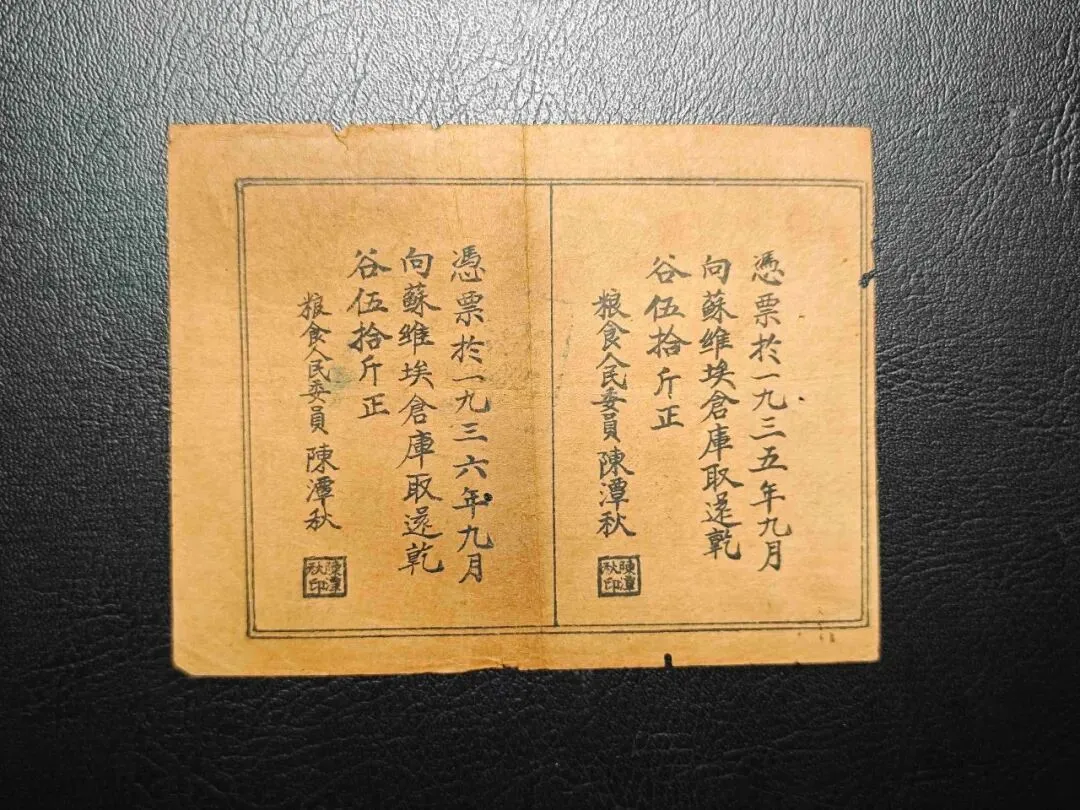 憑票於一九三五年九月
向蘇维埃倉庫取还乾
谷伍拾斤正
粮食人民委員 陳潭秋
陳潭秋印
憑票於一九三六年九月
向蘇维埃倉庫取还乾
谷伍拾斤正
粮食人民委員 陳潭秋
陳潭秋印